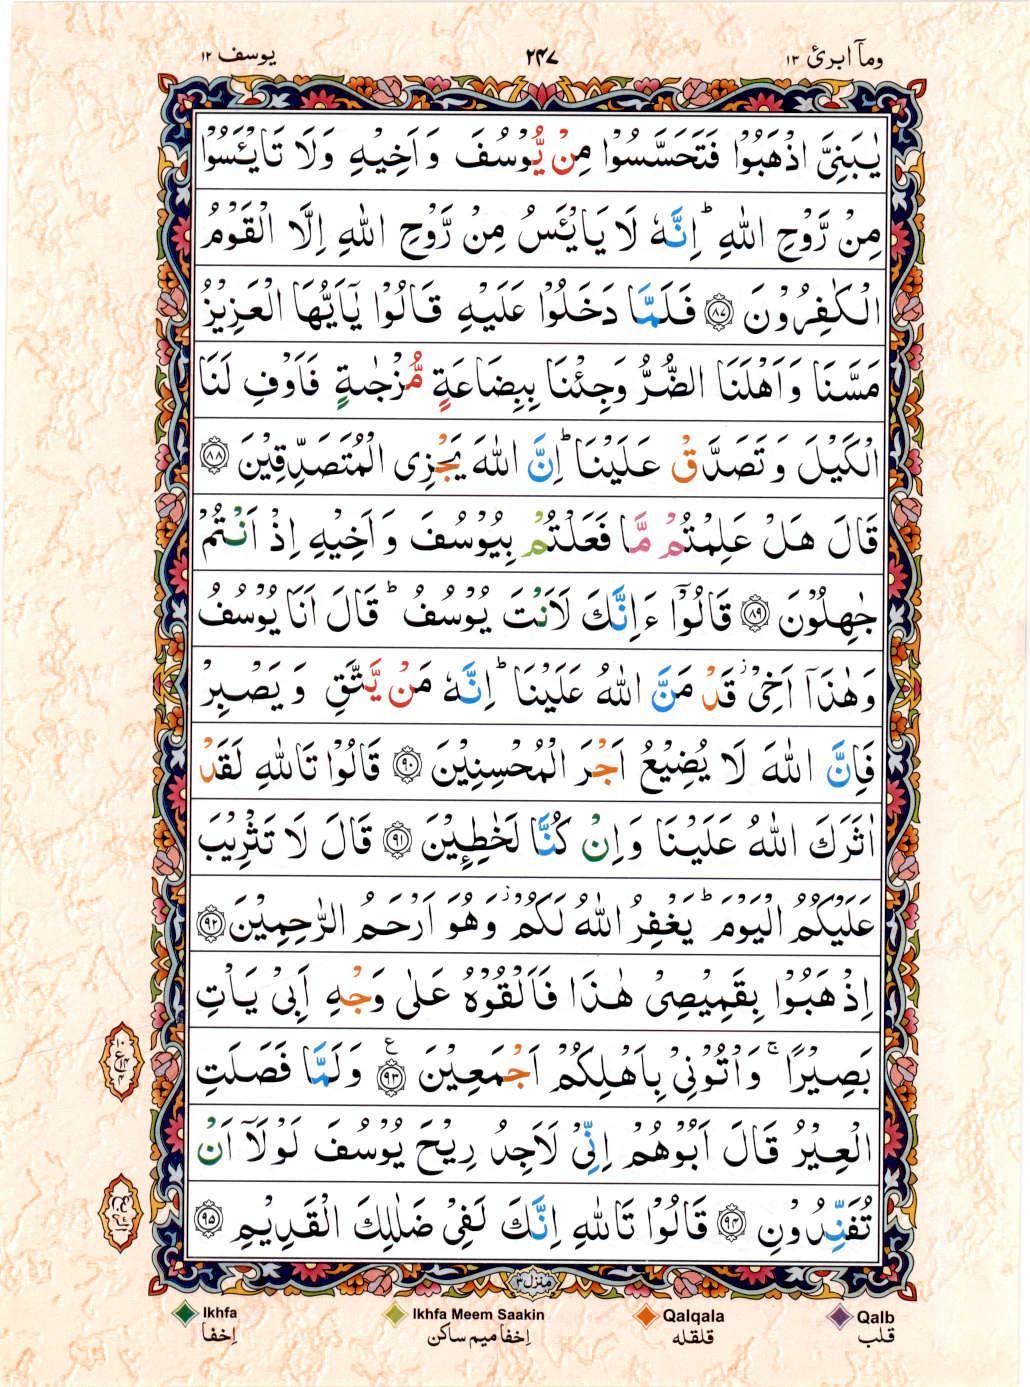 وما ابرئ ۱۳
۲۴۷
يوسف ۱۲
يٰبَنِىَّ اذْهَبُوْا فَتَحَسَّسُوْا مِنْ يُّوْسُفَ وَاَخِيْهِ وَلَا تَايْـَٔسُوْا
مِنْ رَّوْحِ اللّٰهِ ؕ اِنَّهٗ لَا يَايْـَٔسُ مِنْ رَّوْحِ اللّٰهِ اِلَّا الْقَوْمُ
الْكٰفِرُوْنَ ۝۸۷ فَلَمَّا دَخَلُوْا عَلَيْهِ قَالُوْا يٰۤاَيُّهَا الْعَزِيْزُ
مَسَّنَا وَاَهْلَنَا الضُّرُّ وَجِئْنَا بِبِضَاعَةٍ مُّزْجٰىةٍ فَاَوْفِ لَنَا
الْكَيْلَ وَتَصَدَّقْ عَلَيْنَا ؕ اِنَّ اللّٰهَ يَجْزِى الْمُتَصَدِّقِيْنَ ۝۸۸
قَالَ هَلْ عَلِمْتُمْ مَّا فَعَلْتُمْ بِيُوْسُفَ وَاَخِيْهِ اِذْ اَنْتُمْ
جٰهِلُوْنَ ۝۸۹ قَالُوْۤا ءَاِنَّكَ لَاَنْتَ يُوْسُفُ ؕ قَالَ اَنَا يُوْسُفُ
وَهٰذَاۤ اَخِىْ ۫ قَدْ مَنَّ اللّٰهُ عَلَيْنَا ؕ اِنَّهٗ مَنْ يَّتَّقِ وَيَصْبِرْ
فَاِنَّ اللّٰهَ لَا يُضِيْعُ اَجْرَ الْمُحْسِنِيْنَ ۝۹۰ قَالُوْا تَاللّٰهِ لَقَدْ
اٰثَرَكَ اللّٰهُ عَلَيْنَا وَاِنْ كُنَّا لَخٰطِـِٕيْنَ ۝۹۱ قَالَ لَا تَثْرِيْبَ
عَلَيْكُمُ الْيَوْمَ ؕ يَغْفِرُ اللّٰهُ لَكُمْ ۫ وَهُوَ اَرْحَمُ الرّٰحِمِيْنَ ۝۹۲
اِذْهَبُوْا بِقَمِيْصِىْ هٰذَا فَاَلْقُوْهُ عَلٰى وَجْهِ اَبِىْ يَاْتِ
بَصِيْرًا ۚ وَاْتُوْنِىْ بِاَهْلِكُمْ اَجْمَعِيْنَ ۝۹۳ ع وَلَمَّا فَصَلَتِ
الْعِيْرُ قَالَ اَبُوْهُمْ اِنِّىْ لَاَجِدُ رِيْحَ يُوْسُفَ لَوْلَاۤ اَنْ
تُفَنِّدُوْنِ ۝۹۴ قَالُوْا تَاللّٰهِ اِنَّكَ لَفِىْ ضَلٰلِكَ الْقَدِيْمِ ۝۹۵
منزل ۳
Ikhfa
Ikhfa Meem Saakin
Qalqala
Qalb
اِخفا
اِخفا میم ساکن
قلقله
قلب